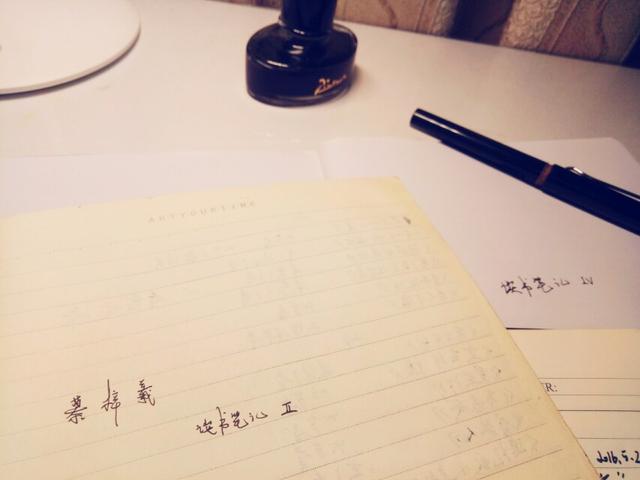 ARTYOURTIME
读书笔记 IV
R:
慕梓義
读书笔记 II
2016.5.2